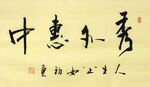 秀外惠中
人生只如初見